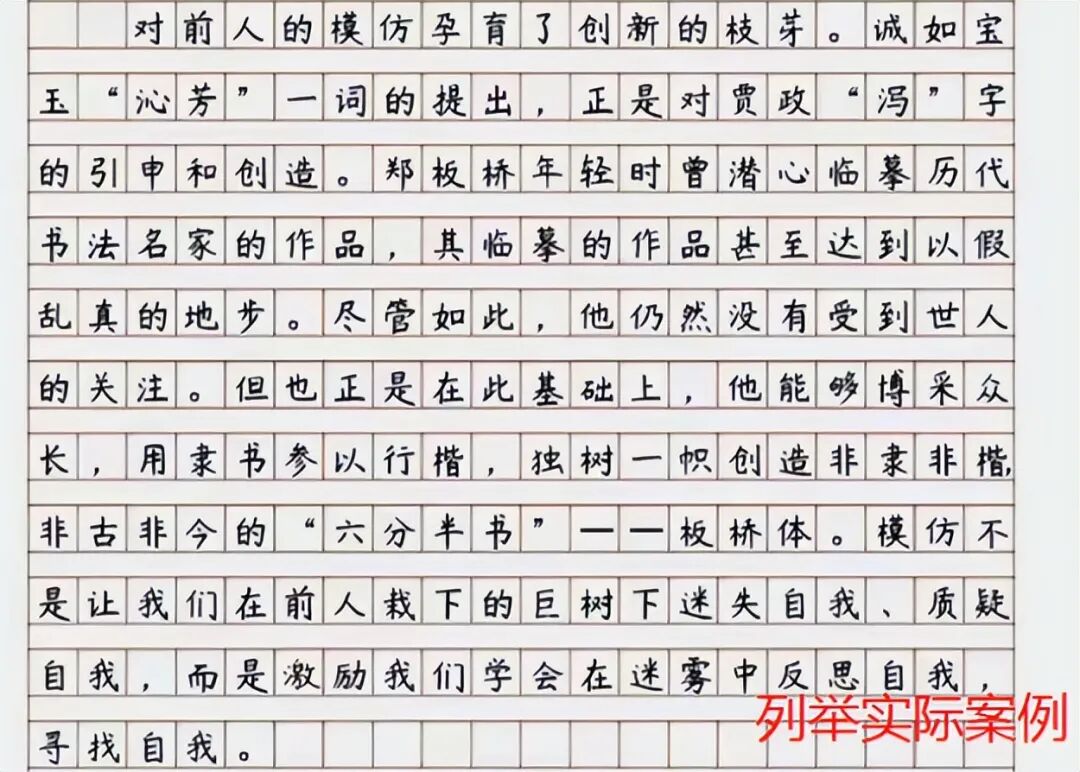 对前人的模仿孕育了创新的枝芽。诚如宝
玉“沁芳”一词的提出，正是对贾政“泻”字
的引申和创造。郑板桥年轻时曾潜心临摹历代
书法名家的作品，其临摹的作品甚至达到以假
乱真的地步。尽管如此，他仍然没有受到世人
的关注。但也正是在此基础上，他能够博采众
长，用隶书参以行楷，独树一帜创造非隶非楷，
非古非今的“六分半书”——板桥体。模仿不
是让我们在前人栽下的巨树下迷失自我、质疑
自我，而是激励我们学会在迷雾中反思自我，
寻找自我。
列举实际案例